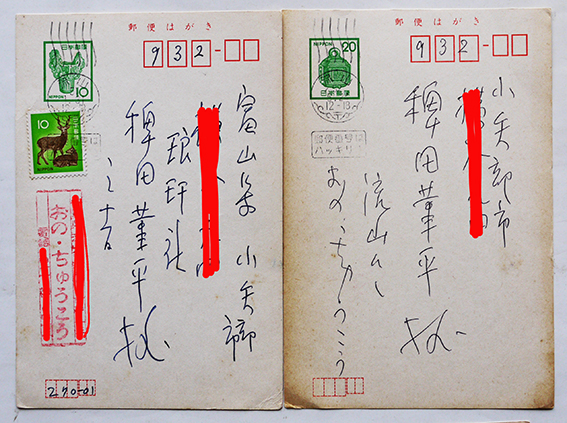 郵便はがき
932-
日本郵便
NIPPON
10
10
日本郵便
NIPPON
富山県小矢部市
琅玕社
稗田菫平様
おの・ちゅうこう
電話
270-01
郵便はがき
932-
NIPPON 20
日本郵便
12-13
郵便番号は
ハッキリ!
小矢部市
稗田菫平様
流山市
おの・ちゅうこう